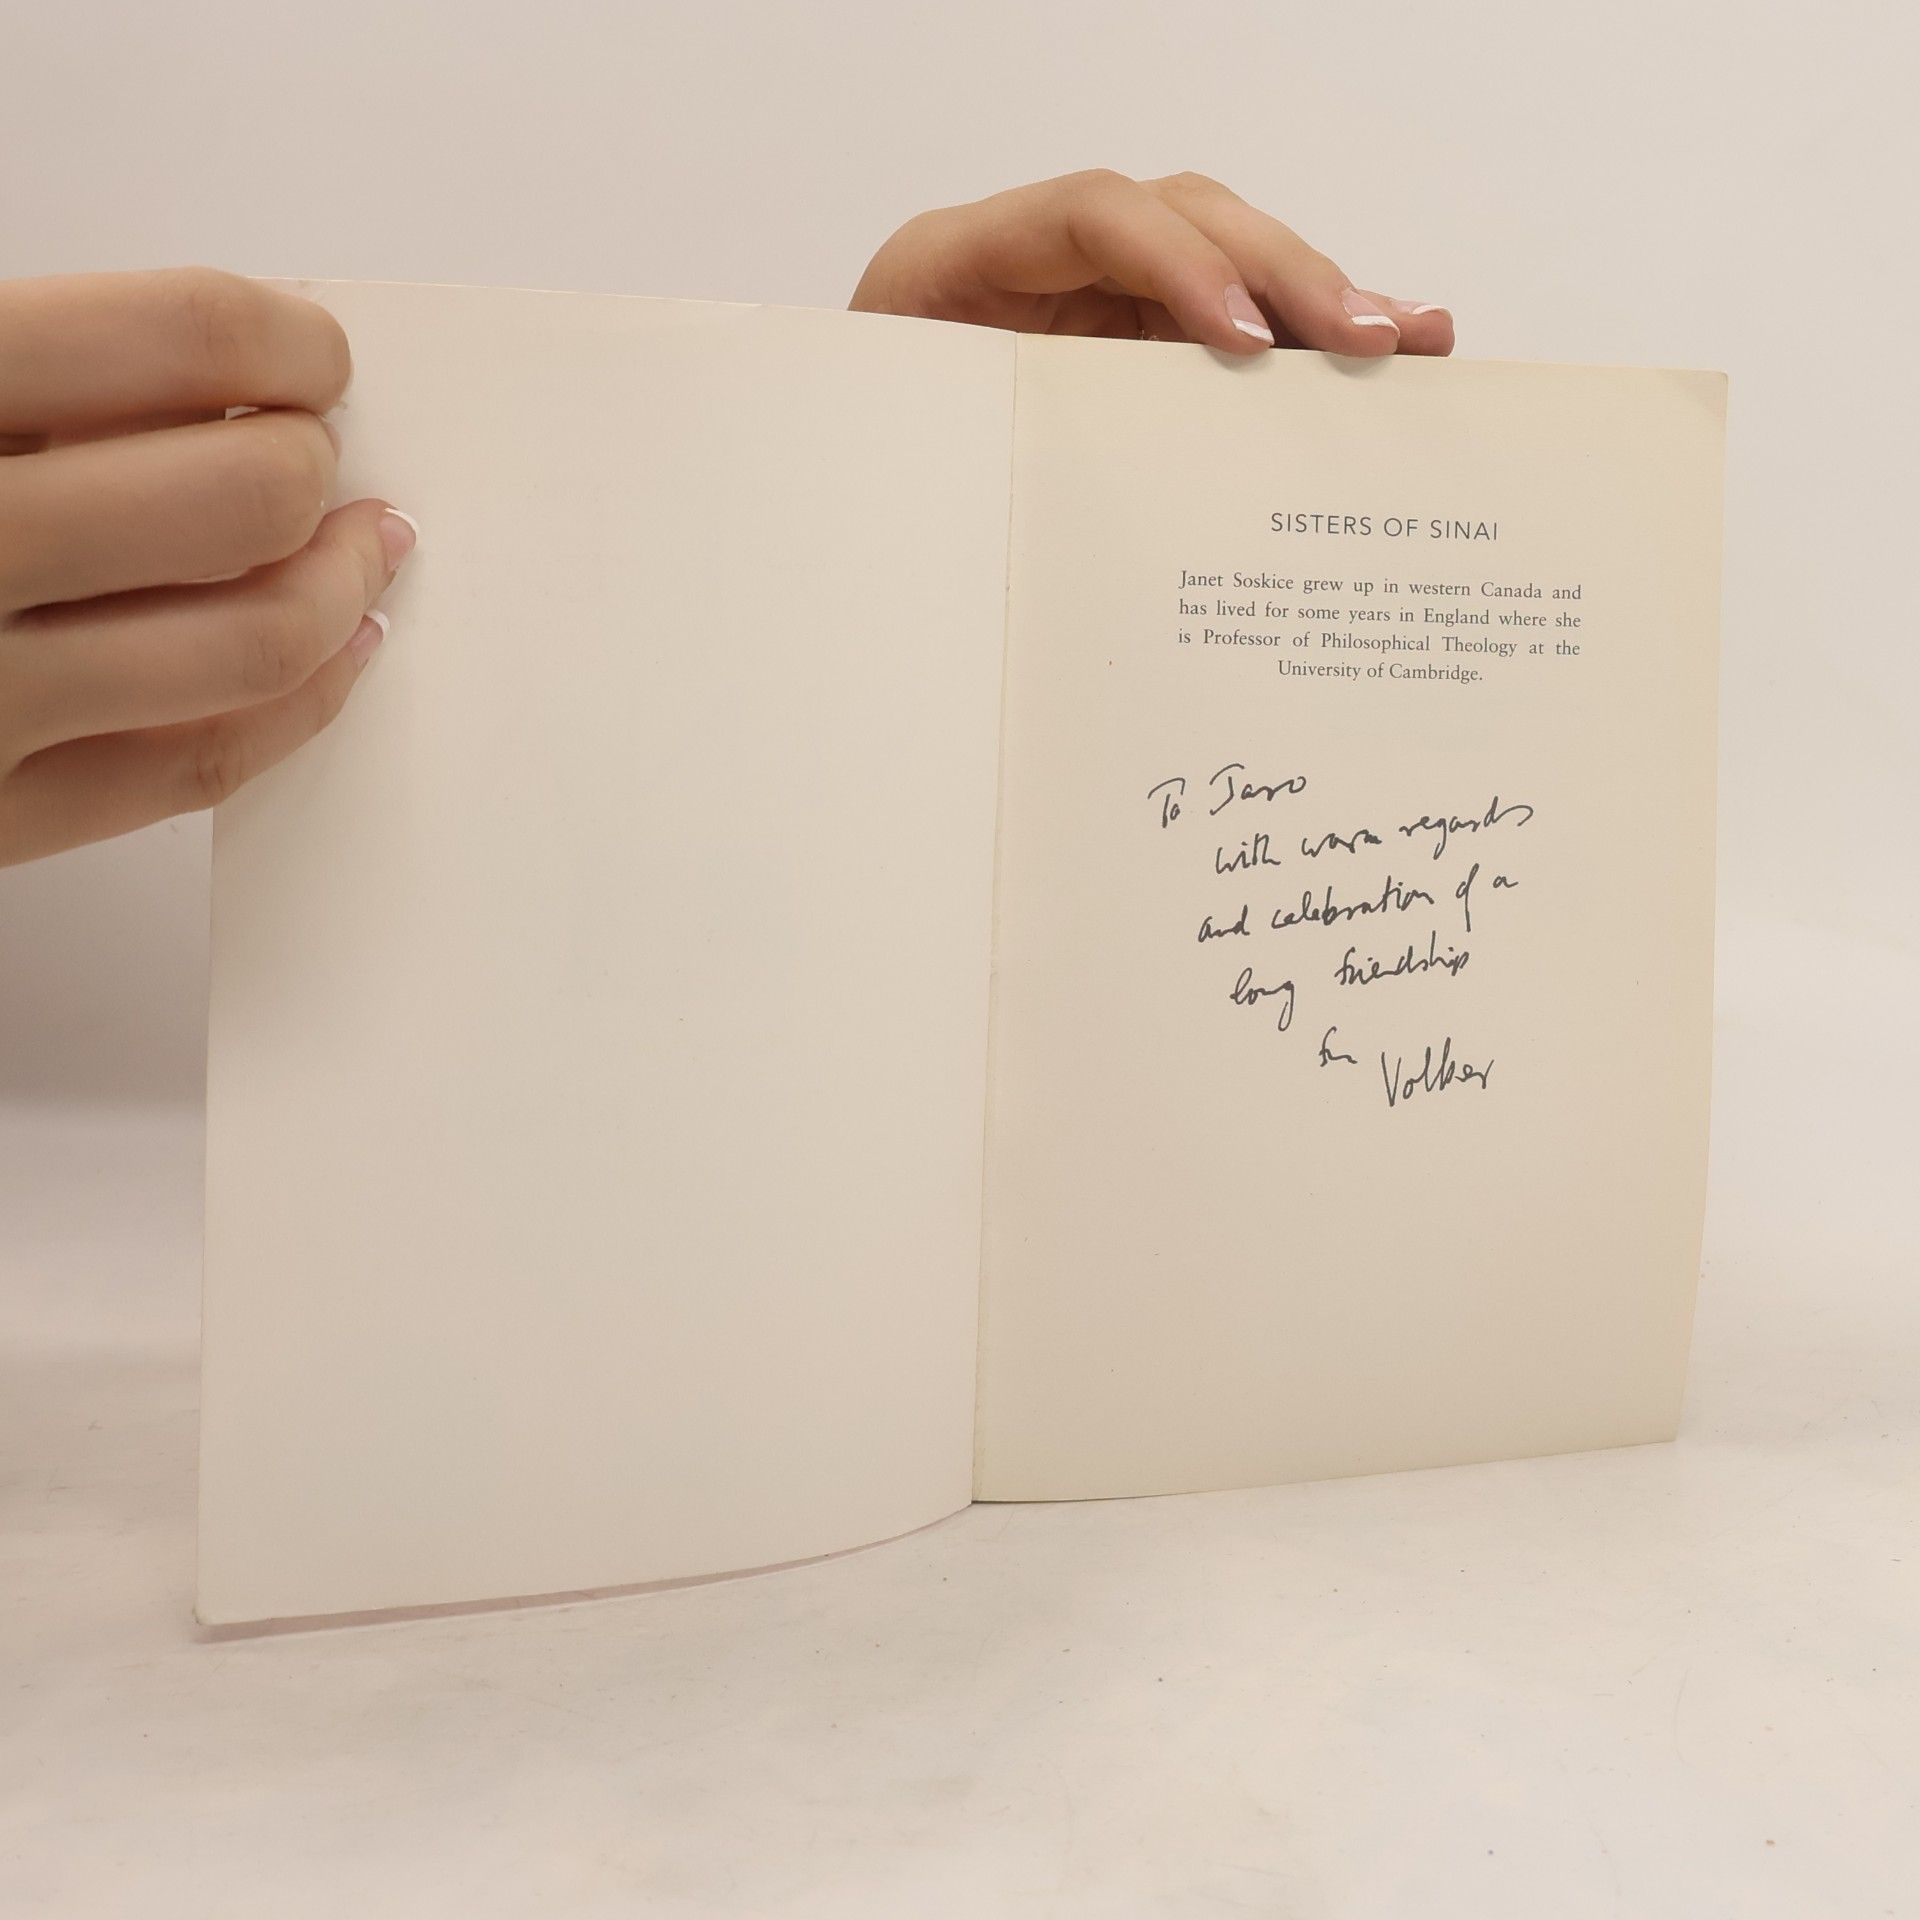 SISTERS OF SINAI
Janet Soskice grew up in western Canada and
has lived for some years in England where she
is Professor of Philosophical Theology at the
University of Cambridge.
To Jaro
with warm regards
and celebration of a
long friendship
from Volker